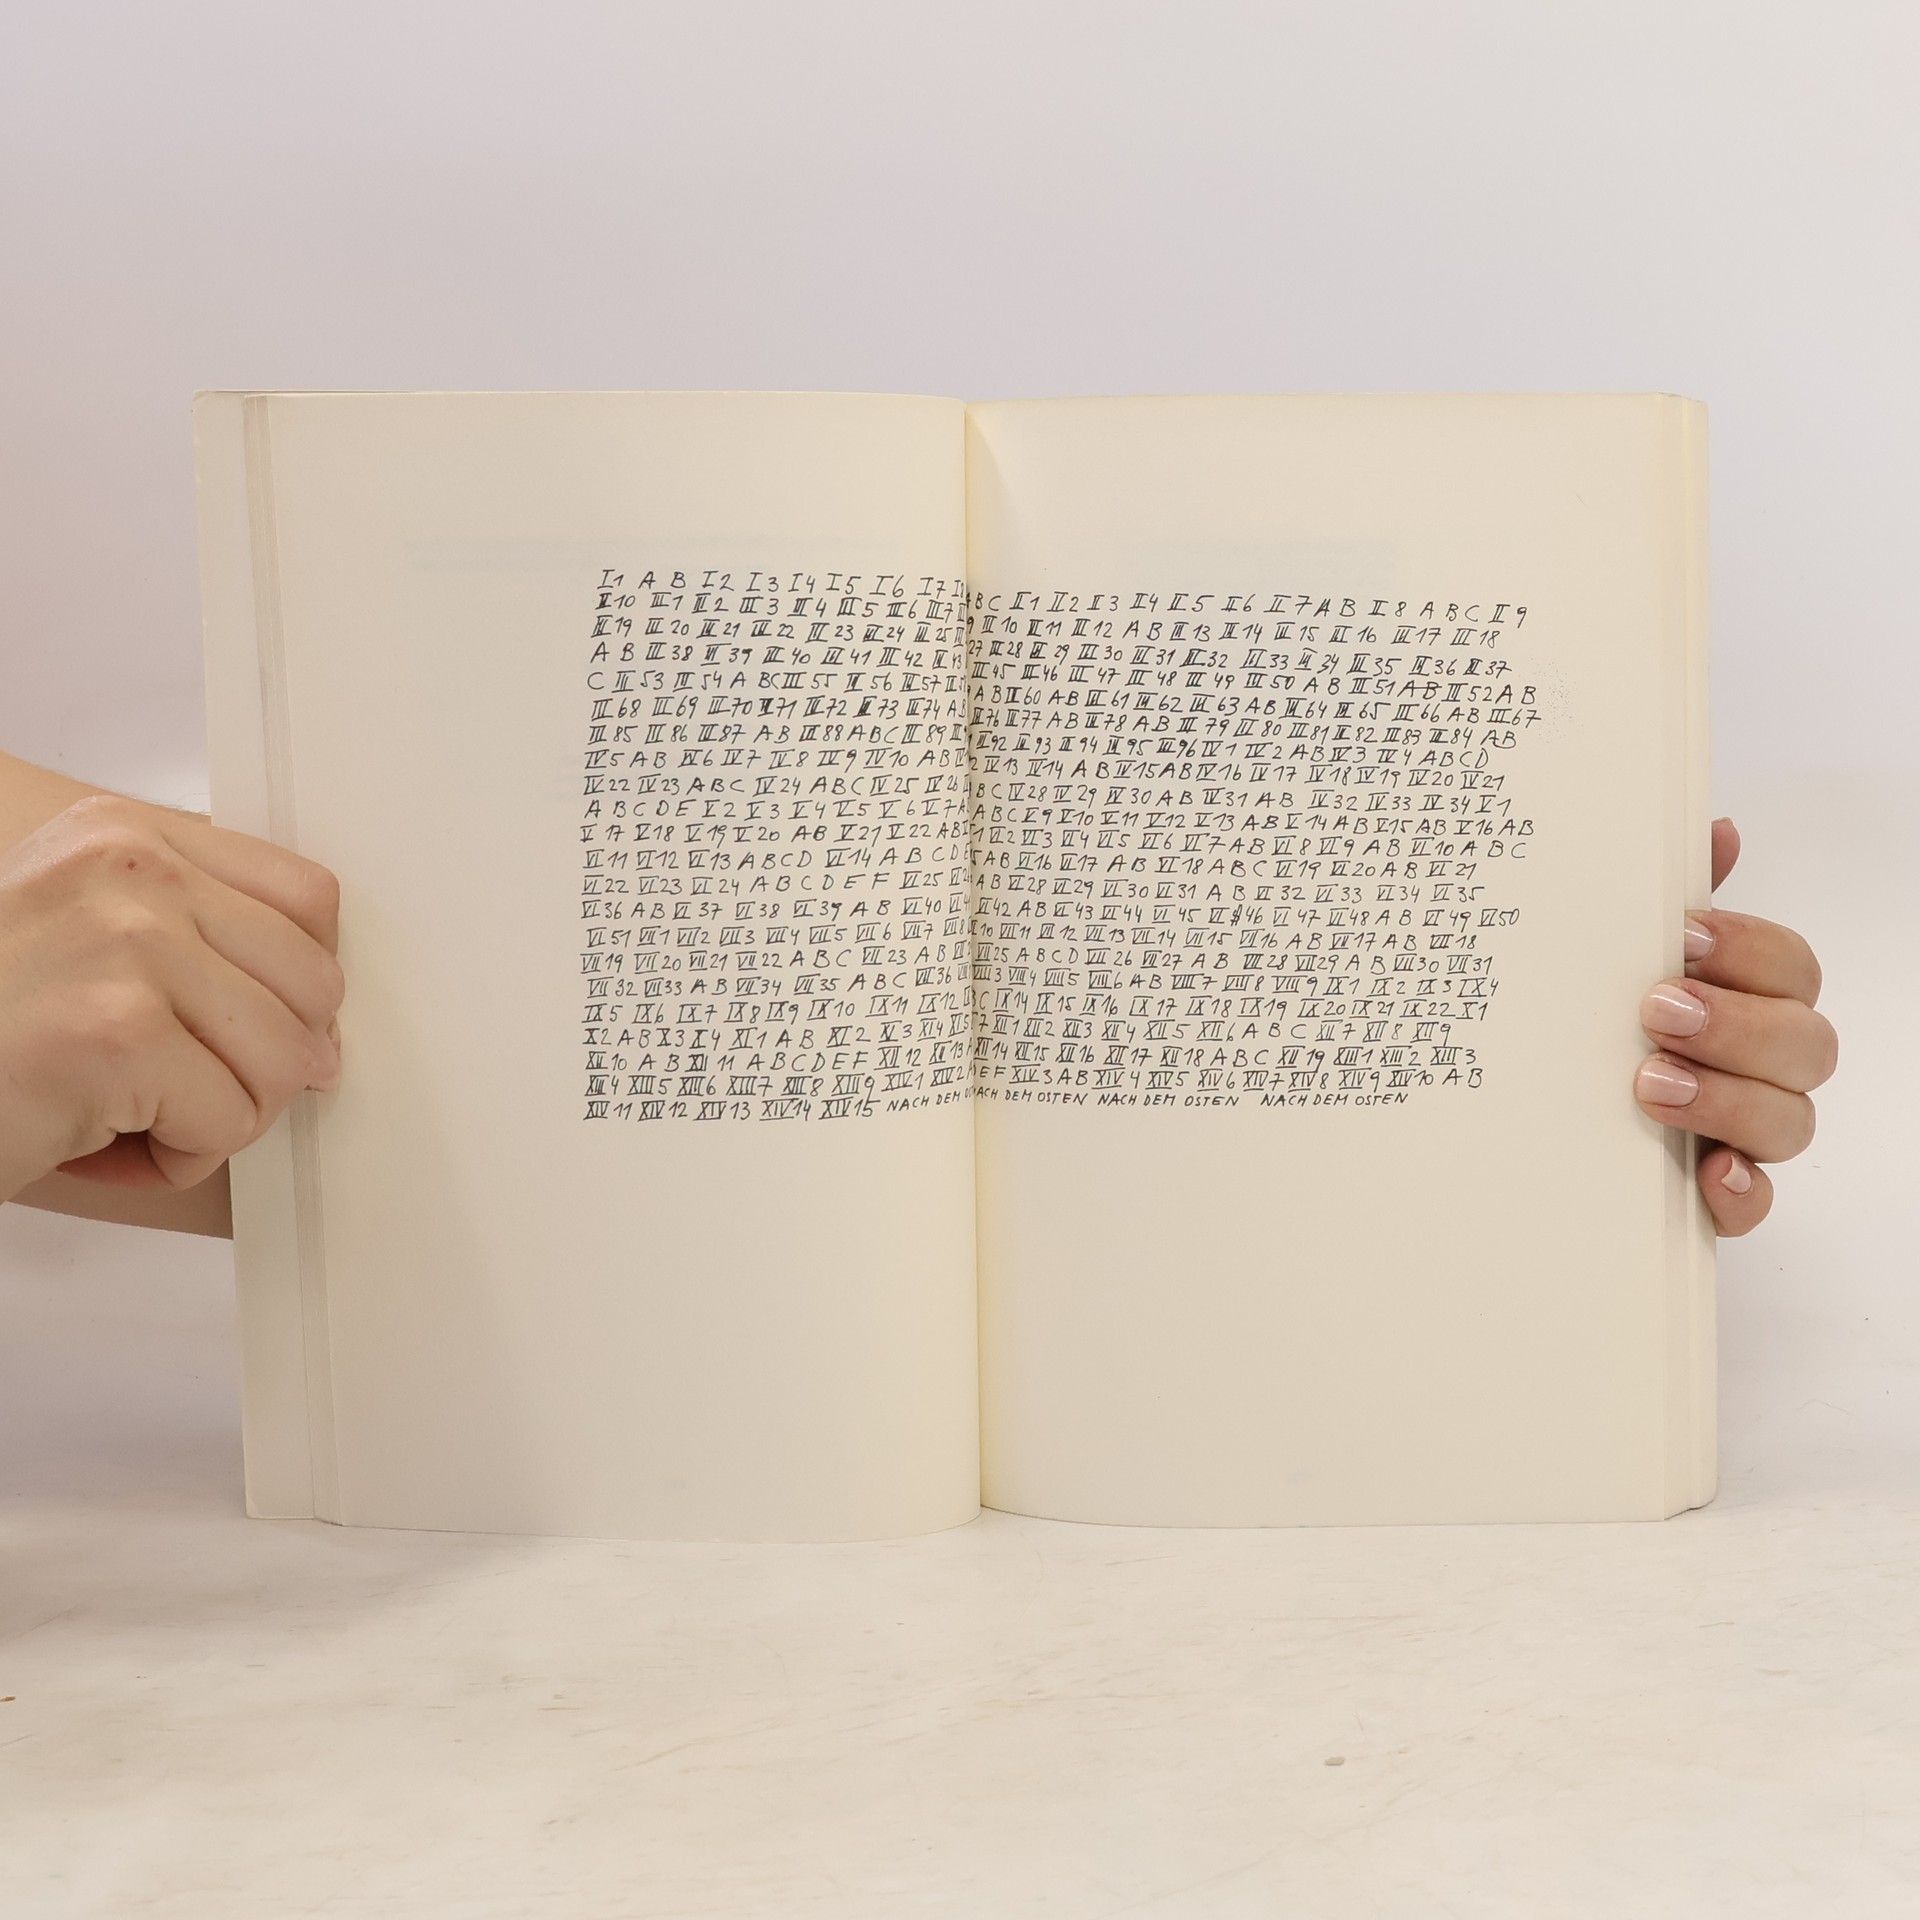 I1 A B I2 I3 I4 I5 I6 I7 I8 A B C II1 II2 II3 II4 II5 II6 II7 A B II8 A B C II9
II10 III1 III2 III3 III4 III5 III6 III7 III 9 III10 III11 III12 A B III13 III14 III15 III16 III17 III18
III19 III20 III21 III22 III23 III24 III25 III 27 III28 III29 III30 III31 III32 III33 III34 III35 III36 III37
A B III38 III39 III40 III41 III42 III43 III45 III46 III47 III48 III49 III50 A B III51 A B III52 A B
C III53 III54 A B C III55 III56 III57 III5 A B III60 A B III61 III62 III63 A B III64 III65 III66 A B III67
III68 III69 III70 III71 III72 III73 III74 A B III76 III77 A B III78 A B III79 III80 III81 III82 III83 III84 A B
III85 III86 III87 A B III88 A B C III89 III9 III92 III93 III94 III95 III96 IV1 IV2 A B IV3 IV4 A B C D
IV5 A B IV6 IV7 IV8 IV9 IV10 A B IV 2 IV13 IV14 A B IV15 A B IV16 IV17 IV18 IV19 IV20 IV21
IV22 IV23 A B C IV24 A B C IV25 IV26 B C IV28 IV29 IV30 A B IV31 A B IV32 IV33 IV34 V1
A B C D E V2 V3 V4 V5 V6 V7 A A B C V9 V10 V11 V12 V13 A B V14 A B V15 A B V16 A B
V17 V18 V19 V20 A B V21 V22 A B 1 VI2 VI3 VI4 VI5 VI6 VI7 A B VI8 VI9 A B VI10 A B C
VI11 VI12 VI13 A B C D VI14 A B C D E 5 A B VI16 VI17 A B VI18 A B C VI19 VI20 A B VI21
VI22 VI23 VI24 A B C D E F VI25 VI26 A B VI28 VI29 VI30 VI31 A B VI32 VI33 VI34 VI35
VI36 A B VI37 VI38 VI39 A B VI40 VI41 VI42 A B VI43 VI44 VI45 VI46 VI47 VI48 A B VI49 VI50
VI51 VII1 VII2 VII3 VII4 VII5 VII6 VII7 VII8 VII10 VII11 VII12 VII13 VII14 VII15 VII16 A B VII17 A B VII18
VII19 VII20 VII21 VII22 A B C VII23 A B VII VII25 A B C D VII26 VII27 A B VII28 VII29 A B VII30 VII31
VII32 VII33 A B VII34 VII35 A B C VII36 VIII3 VIII4 VIII5 VIII6 A B VIII7 VIII8 VIII9 IX1 IX2 IX3 IX4
IX5 IX6 IX7 IX8 IX9 IX10 IX11 IX12 B C IX14 IX15 IX16 IX17 IX18 IX19 IX20 IX21 IX22 X1
X2 A B X3 X4 XI1 A B XI2 XI3 XI4 XI5 7 XII1 XII2 XII3 XII4 XII5 XII6 A B C XII7 XII8 XII9
XII10 A B XII11 A B C D E F XII12 XII13 XII14 XII15 XII16 XII17 XII18 A B C XII19 XIII1 XIII2 XIII3
XIII4 XIII5 XIII6 XIII7 XIII8 XIII9 XIV1 XIV2 A D E F XIV3 A B XIV4 XIV5 XIV6 XIV7 XIV8 XIV9 XIV10 A B
XIV11 XIV12 XIV13 XIV14 XIV15 NACH DEM NACH DEM OSTEN NACH DEM OSTEN NACH DEM OSTEN